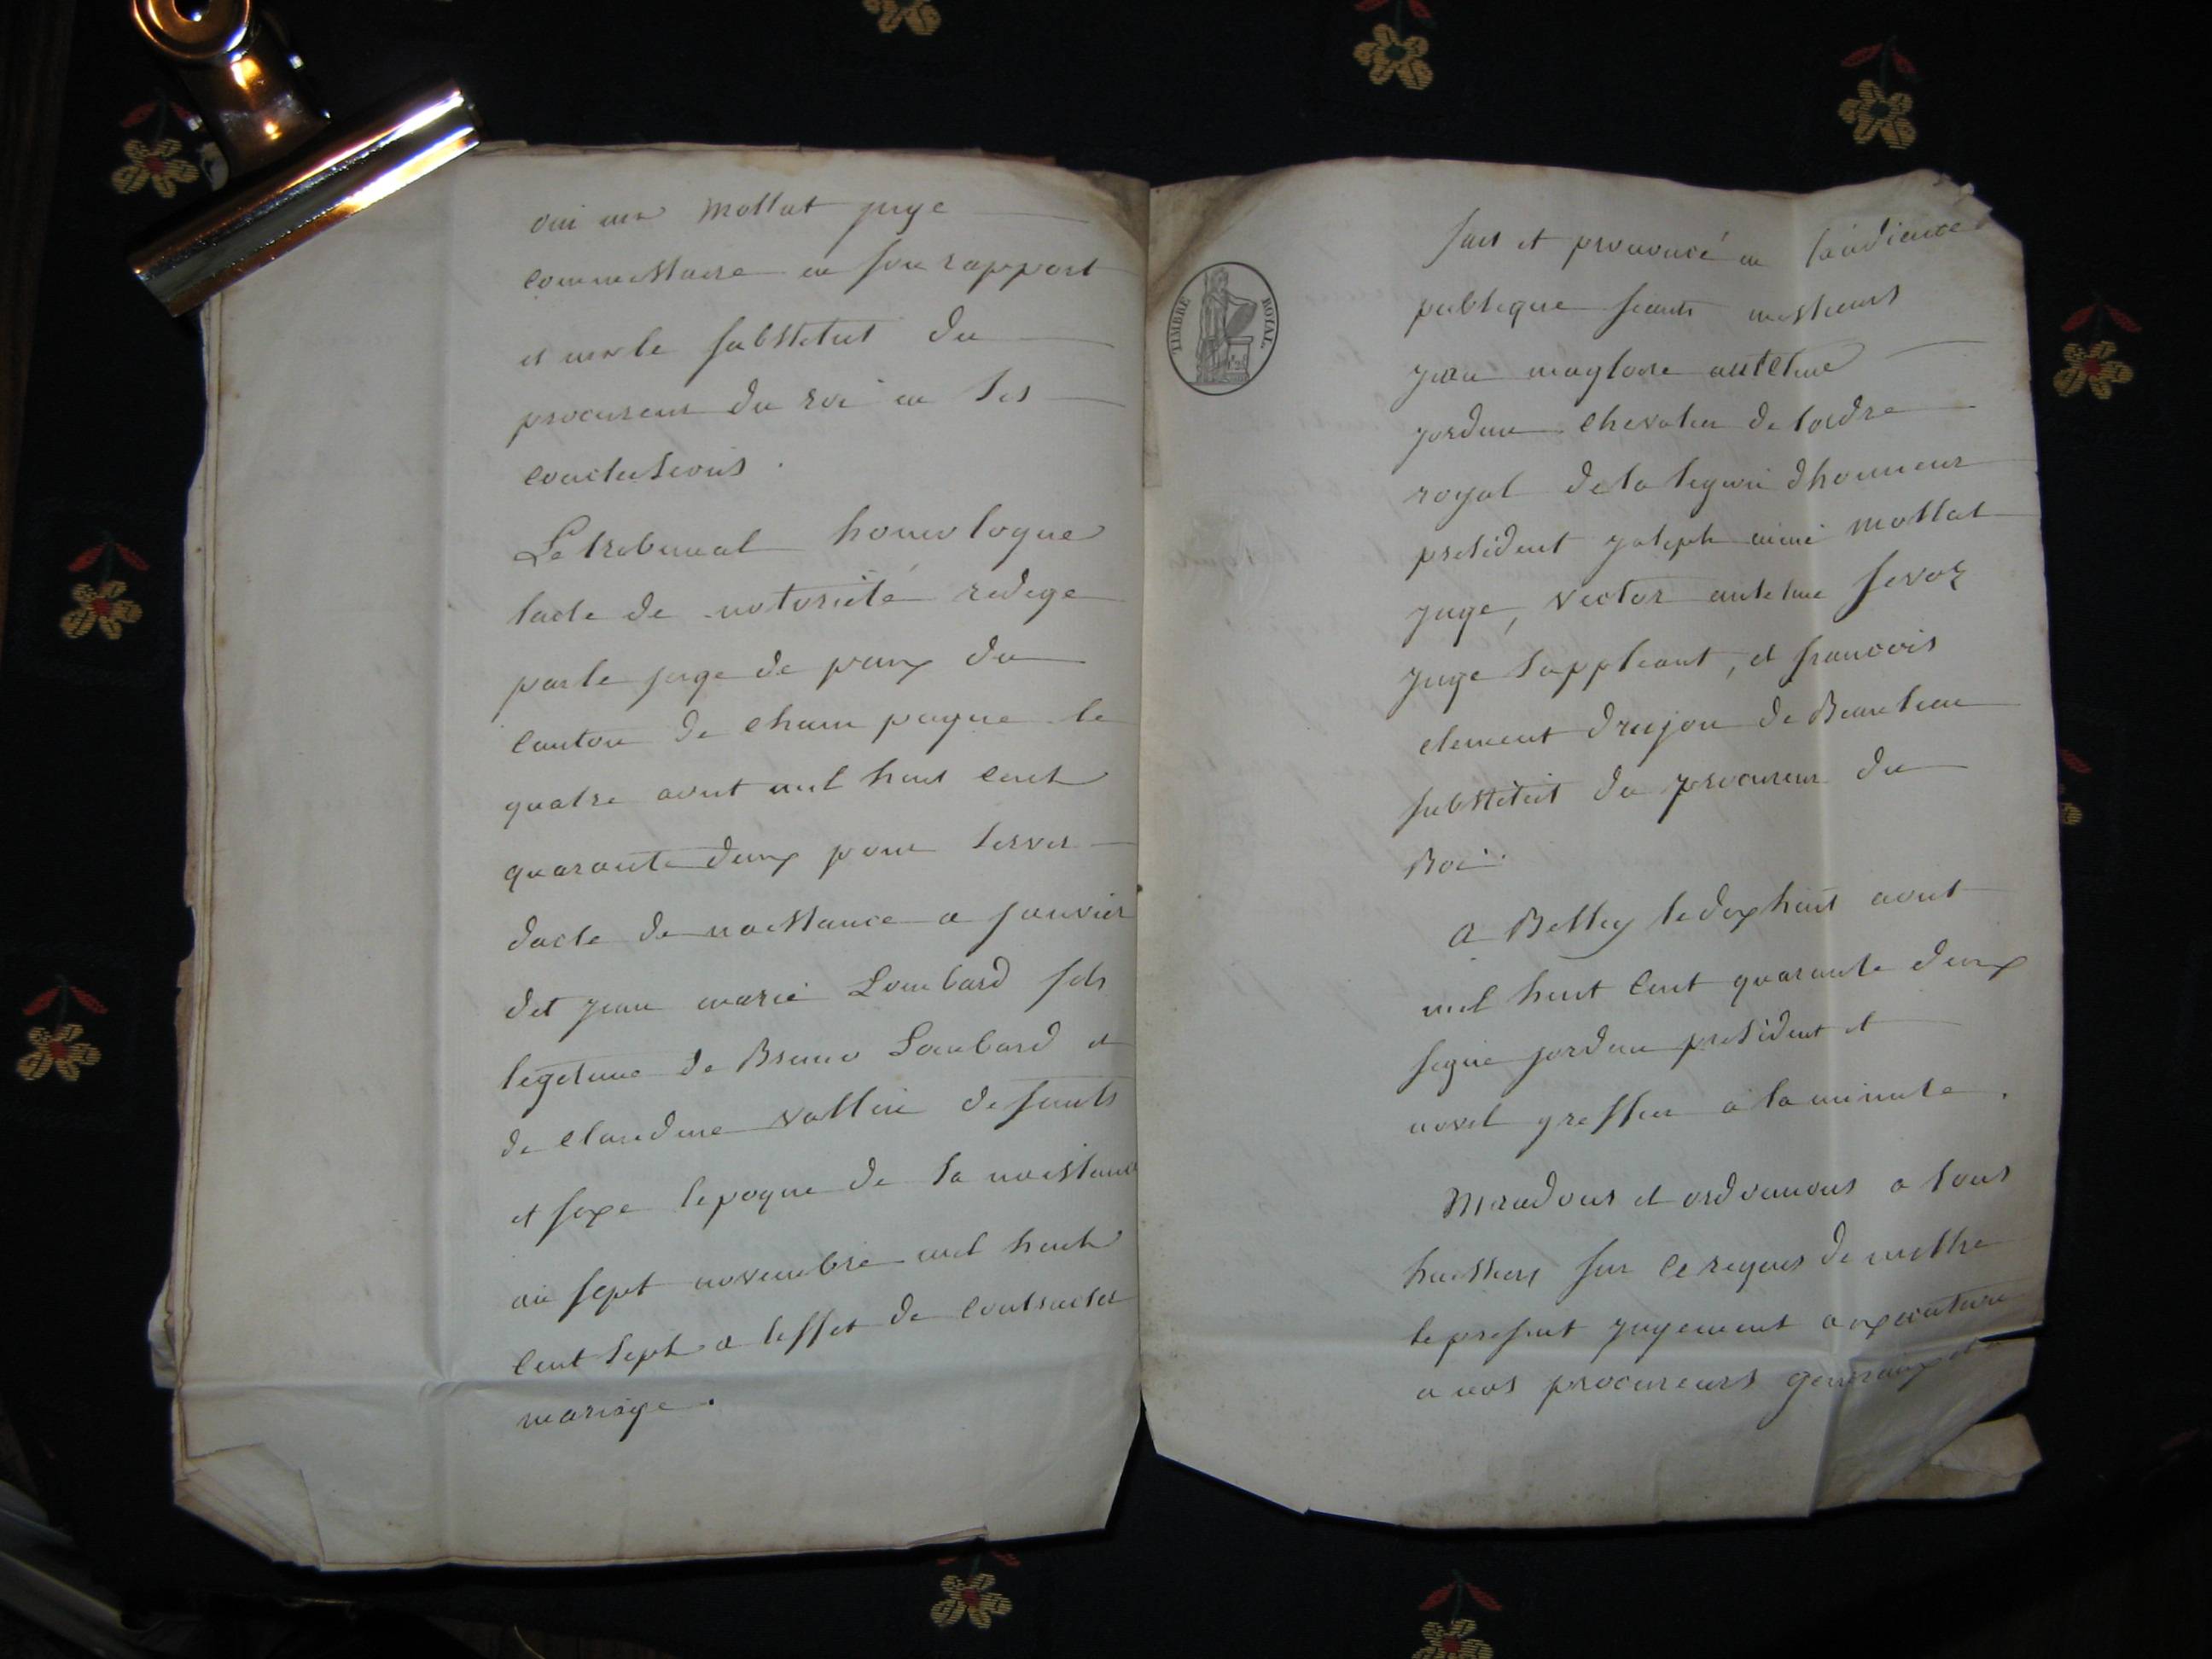 oui mr Mollat juge
commissaire en son rapport
et mr le substitut du
procureur du roi en ses
conclusions.
Le tribunal homologue
lacte de notoriété redigé
par le juge de paix du
canton de champagne le
quatre aout mil huit cent
quarante deux pour servir
dacte de naissance a janvier
dit jean marie Lombard fils
legitime de Bruno Lombard et
de claudine vallin defunts
et fixe lepoque de sa naissance
au sept novembre mil huit
cent sept a leffet de contracter
mariage.
TIMBRE ROYAL
fait et prononcé en laudience
publique seants messieurs
jean magloire anthelme
jordan chevalier de lordre
royal de la legion dhonneur
president joseph aimé mollat
juge, victor antelme sevoz
juge suppleant, et francois
clement drujon de Beaulieu
substitut du procureur du
Roi.
a Belley le dix huit aout
mil huit cent quarante deux
signé jordan president et
greffier a la minute.
Mandons et ordonnons a tous
huissiers sur ce requis de mettre
le present jugement a execution
a nos procureurs generaux et a